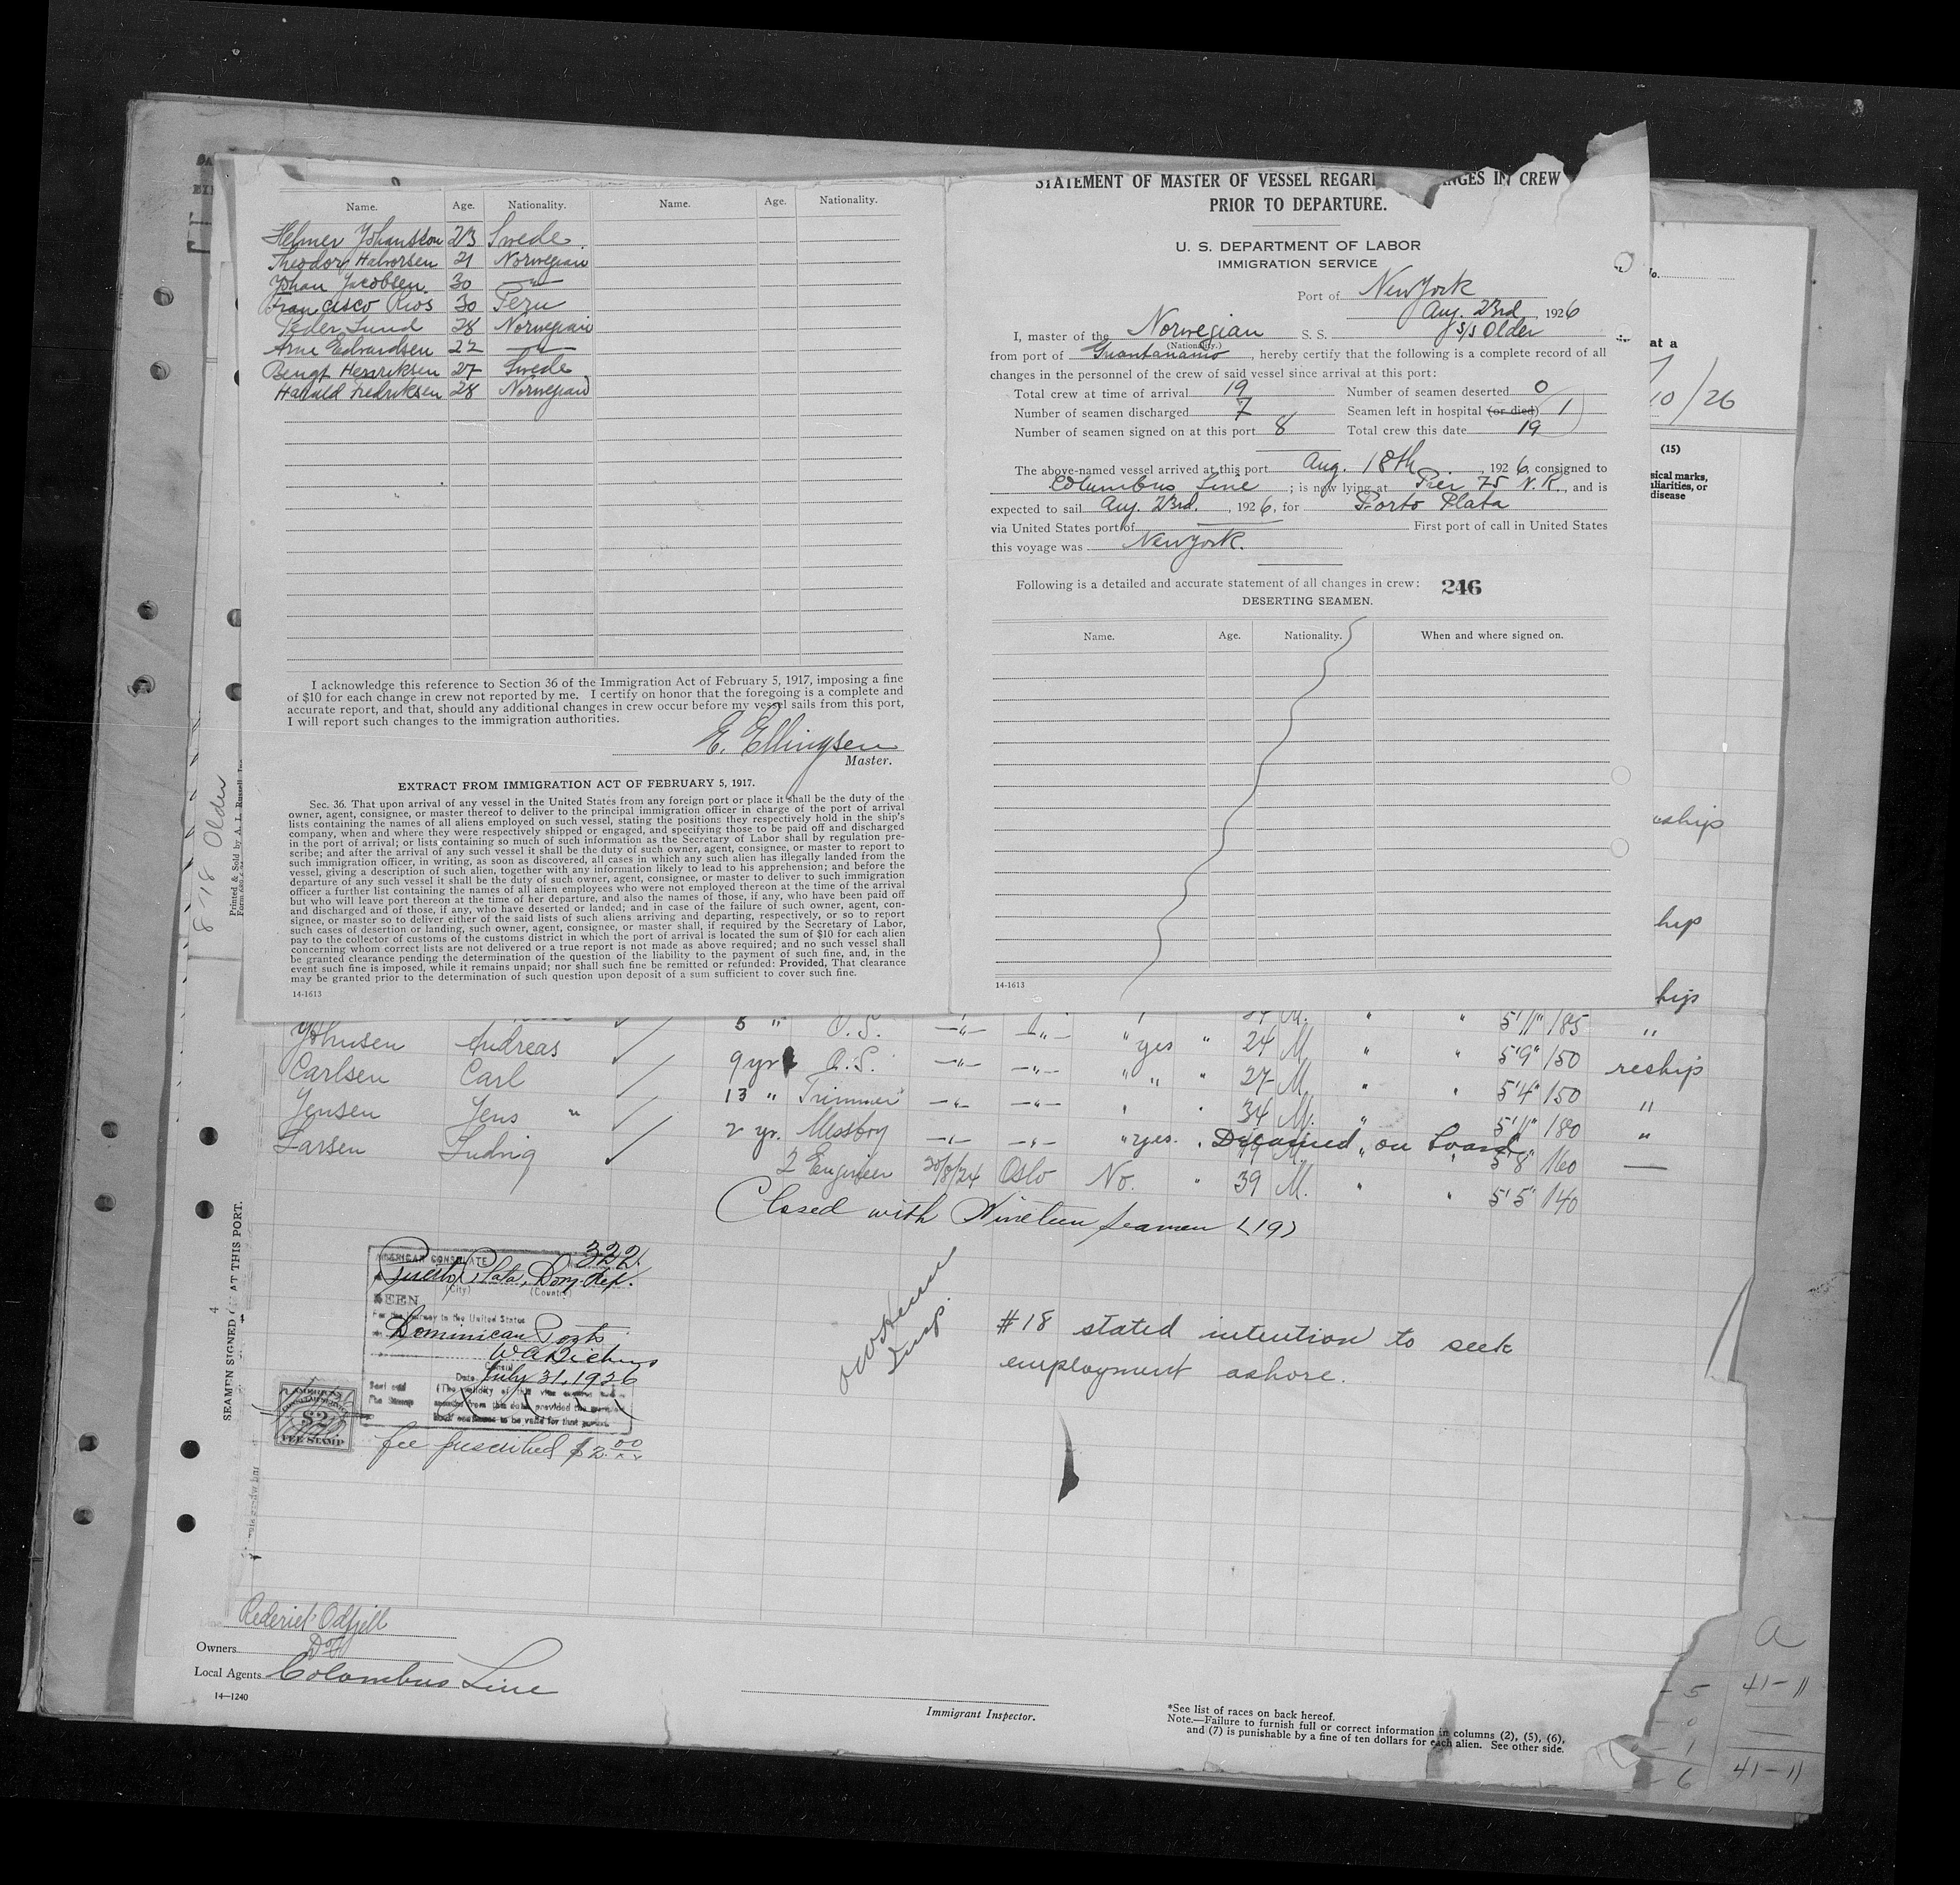 Name. Age. Nationality. Name. Age. Nationality.
Helmer Johansson 23 Swede
Theodor Halvorsen 21 Norwegian
Johan Jacobsen 30 —"—
Francisco Rios 30 Peru
Peder Lund 28 Norwegian
Arne Edvardsen 22 —"—
Bengt Henriksen 27 Swede
Harald Fredriksen 28 Norwegian
I acknowledge this reference to Section 36 of the Immigration Act of February 5, 1917, imposing a fine
of $10 for each change in crew not reported by me. I certify on honor that the foregoing is a complete and
accurate report, and that, should any additional changes in crew occur before my vessel sails from this port,
I will report such changes to the immigration authorities.
E. Ellingsen
Master.
EXTRACT FROM IMMIGRATION ACT OF FEBRUARY 5, 1917.
Sec. 36. That upon arrival of any vessel in the United States from any foreign port or place it shall be the duty of the
owner, agent, consignee, or master thereof to deliver to the principal immigration officer in charge of the port of arrival
lists containing the names of all aliens employed on such vessel, stating the positions they respectively hold in the ship's
company, when and where they were respectively shipped or engaged, and specifying those to be paid off and discharged
in the port of arrival; or lists containing so much of such information as the Secretary of Labor shall by regulation pre-
scribe; and after the arrival of any such vessel it shall be the duty of such owner, agent, consignee, or master to report to
such immigration officer, in writing, as soon as discovered, all cases in which any such alien has illegally landed from the
vessel, giving a description of such alien, together with any information likely to lead to his apprehension; and before the
departure of any such vessel it shall be the duty of such owner, agent, consignee, or master to deliver to such immigration
officer a further list containing the names of all alien employees who were not employed thereon at the time of the arrival
but who will leave port thereon at the time of her departure, and also the names of those, if any, who have been paid off
and discharged and of those, if any, who have deserted or landed; and in case of the failure of such owner, agent, con-
signee, or master so to deliver either of the said lists of such aliens arriving and departing, respectively, or so to report
such cases of desertion or landing, such owner, agent, consignee, or master shall, if required by the Secretary of Labor,
pay to the collector of customs of the customs district in which the port of arrival is located the sum of $10 for each alien
concerning whom correct lists are not delivered or a true report is not made as above required; and no such vessel shall
be granted clearance pending the determination of the question of the liability to the payment of such fine, and, in the
event such fine is imposed, while it remains unpaid; nor shall such fine be remitted or refunded: Provided, That clearance
may be granted prior to the determination of such question upon deposit of a sum sufficient to cover such fine.
14-1613
STATEMENT OF MASTER OF VESSEL REGAR NGES IN CREW
PRIOR TO DEPARTURE.
U. S. DEPARTMENT OF LABOR
IMMIGRATION SERVICE
Port of New York
Aug. 23rd, 1926
I, master of the Norwegian S. S. s/s Older
(Nationality.)
from port of Guantanamo, hereby certify that the following is a complete record of all
changes in the personnel of the crew of said vessel since arrival at this port:
Total crew at time of arrival 19 Number of seamen deserted 0
Number of seamen discharged 7 Seamen left in hospital (or died) 1
Number of seamen signed on at this port 8 Total crew this date 19
The above-named vessel arrived at this port Aug. 18th, 1926, consigned to
Columbus Line; is now lying at Pier 75 N. R., and is
expected to sail Aug. 23rd., 1926, for Porto Plata
via United States port of First port of call in United States
this voyage was New York.
Following is a detailed and accurate statement of all changes in crew: 246
DESERTING SEAMEN.
Name. Age. Nationality. When and where signed on.
14-1613
at a
10/26
(15)
sical marks,
uliarities, or
disease
hip
hip
8-18 Older
Printed & Sold by A. L. Russell, Inc.
5 " O.S. —"— M. " " 5'11" 185 "
Johnsen Andreas 9 yr O.S. —"— —"— " yes " 24 M. " " 5'9" 150 reship
Carlsen Carl 13 " Trimmer —"— —"— " " " 27 M. " " 5'4" 150 "
Jensen Jens " 2 yr. Messboy —"— —"— " yes. 34 M. " 5'11" 180 "
Deceased on board 5'8" 160 —
Larsen Ludvig 2 Engineer 20/8/24 Oslo No. " 39 M. " " 5'5" 140
Closed with Nineteen seamen (19)
SEAMEN SIGNED AT THIS PORT.
4
AMERICAN CONSULATE 322.
Puerto Plata, Dom. Rep.
(City) (Country)
SEEN
For the journey to the United States
Dominican Ports
W A Bickers
Consul
Date July 31, 1926
$2
FEE STAMP
fee prescribed $2.00
Insp.
#18 stated intention to seek
employment ashore.
Rederiet Odfjell
Owners
Local Agents Columbus Line
14—1240
Immigrant Inspector.
*See list of races on back hereof.
Note.—Failure to furnish full or correct information in columns (2), (5), (6),
and (7) is punishable by a fine of ten dollars for each alien. See other side.
a
- 5 41-11
- 0
- 1
- 6 41-11